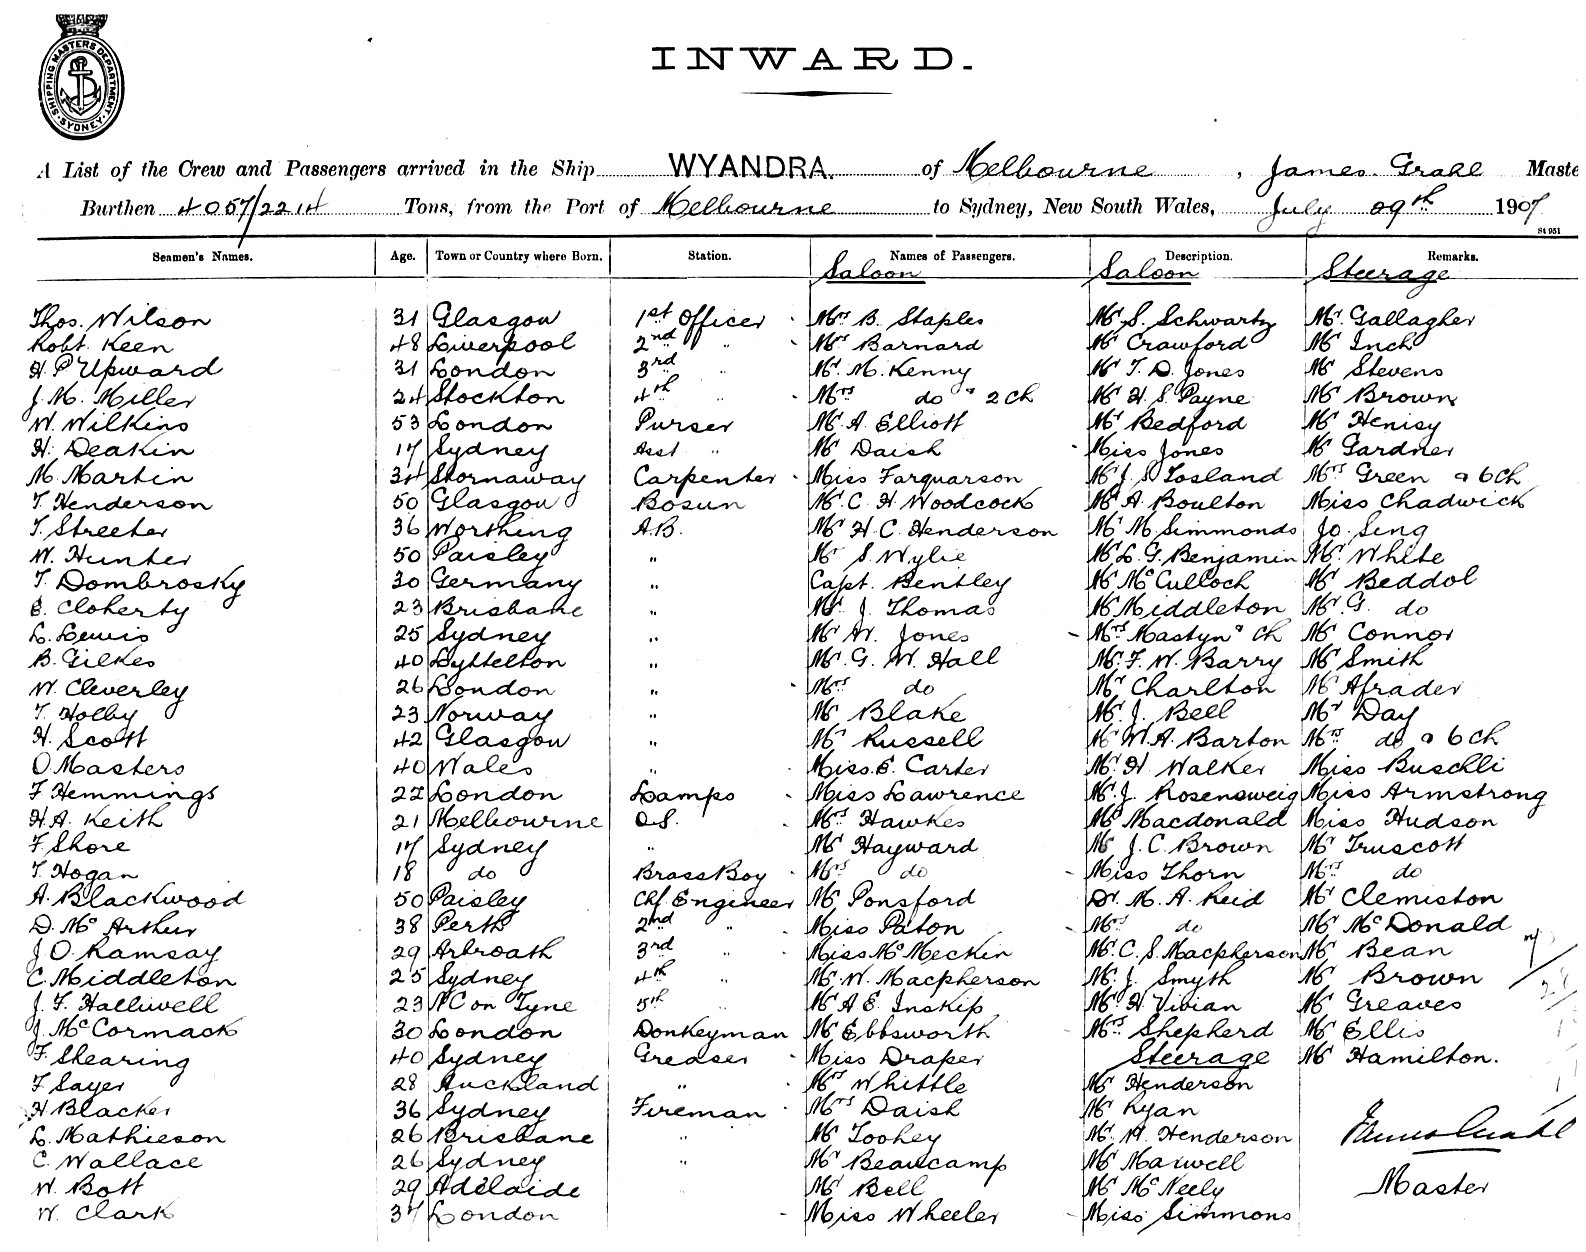 SHIPPING MASTERS DEPARTMENT. SYDNEY.
INWARD.
A List of the Crew and Passengers arrived in the Ship WYANDRA. of Melbourne, James Grahl Maste
Burthen 4057/2214 Tons, from the Port of Melbourne to Sydney, New South Wales, July 09th 1907
St 951
Seamen's Names. Age. Town or Country where Born. Station. Names of Passengers. Description. Remarks.
Saloon Saloon Steerage
Thos. Wilson 31 Glasgow 1st Officer Mrs B. Staples Mr S. Schwartz Mr Gallagher
Robt. Keen 48 Liverpool 2nd " Mrs Barnard Mr Crawford Mr Inch
H. P. Upward 31 London 3rd " Mr M. Kenny Mr T. D. Jones Mr Stevens
J. M. Miller 24 Stockton 4th " Mrs do & 2 ch Mr H. S. Payne Mr Brown
W. Wilkins 53 London Purser Mr A Elliott Mr Bedford Mr Henisy
H. Deakin 17 Sydney Asst " Mr Daish Miss Jones Mr Gardner
M. Martin 34 Stornaway Carpenter Miss Farquarson Mr J. S. Tosland Mrs Green & 6 ch
T. Henderson 50 Glasgow Bosun Mr C. H. Woodcock Mr A. Boulton Miss Chadwick
T. Streeter 36 Worthing A.B. Mr H. C. Henderson Mr M Simmonds Jo. Sing
W. Hunter 50 Paisley " Mr S. Wylie Mr L. G. Benjamin Mr White
T. Dombrosky 30 Germany " Capt. Bentley Mr McCulloch Mr Beddol
E. Cloherty 23 Brisbane " Mr J. Thomas Mr Middleton Mr G. do
L. Lewis 25 Sydney " Mr W. Jones Mrs Mastyn & ch Mr Connor
B. Gilkes 40 Lyttelton " Mr G. W. Hall Mr F. W. Barry Mr Smith
W. Cleverley 26 London " Mrs do Mr Charlton Mr Afrader
T. Holby 23 Norway " Mr Blake Mr J. Bell Mr Day
H. Scott 42 Glasgow " Mr Russell Mr W. A. Barton Mrs do & 6 ch
O. Masters 40 Wales " Miss E. Carter Mr H. Walker Miss Buschli
F Hemmings 22 London Lamps Miss Lawrence Mr J. Rosensweig Miss Armstrong
H. A. Keith 21 Melbourne O.S. Mrs Hawkes Mr Macdonald Miss Hudson
F. Shore 17 Sydney " Mr Hayward Mr J. C. Brown Mr Truscott
T. Hogan 18 do Brass Boy Mrs do Miss Thorn Mrs do
A. Blackwood 50 Paisley Chf. Engineer Mr Ponsford Dr. M. A. Reid Mr Clemiston
D. McArthur 38 Perth 2nd " Miss Paton Mrs do Mr McDonald
J. O. Ramsay 29 Arbroath 3rd " Miss McMeckin Mr C. S. Macpherson Mr Bean
C. Middleton 25 Sydney 4th " Mr W. Macpherson Mr J. Smyth Mr Brown
J. F. Halliwell 23 N C on Tyne 5th " Mr A E. Inskip Mr H Vivian Mr Greaves
J. McCormack 30 London Donkeyman Mr Ebbsworth Mrs Shepherd Mr Ellis
F Shearing 40 Sydney Greaser Miss Draper Steerage Mr Hamilton.
F. Sayer 28 Auckland " Mrs Whittle Mr Henderson
H Blacker 36 Sydney Fireman Mrs Daish Mr Ryan
L. Mathieson 26 Brisbane " Mr Toohey Mr H. Henderson James Grahl
C. Wallace 26 Sydney " Mr Beaucamp Mr Maxwell
W. Bott 29 Adelaide Mr Bell Mr McNeely Master
W. Clark 37 London Miss Wheeler Miss Simmons